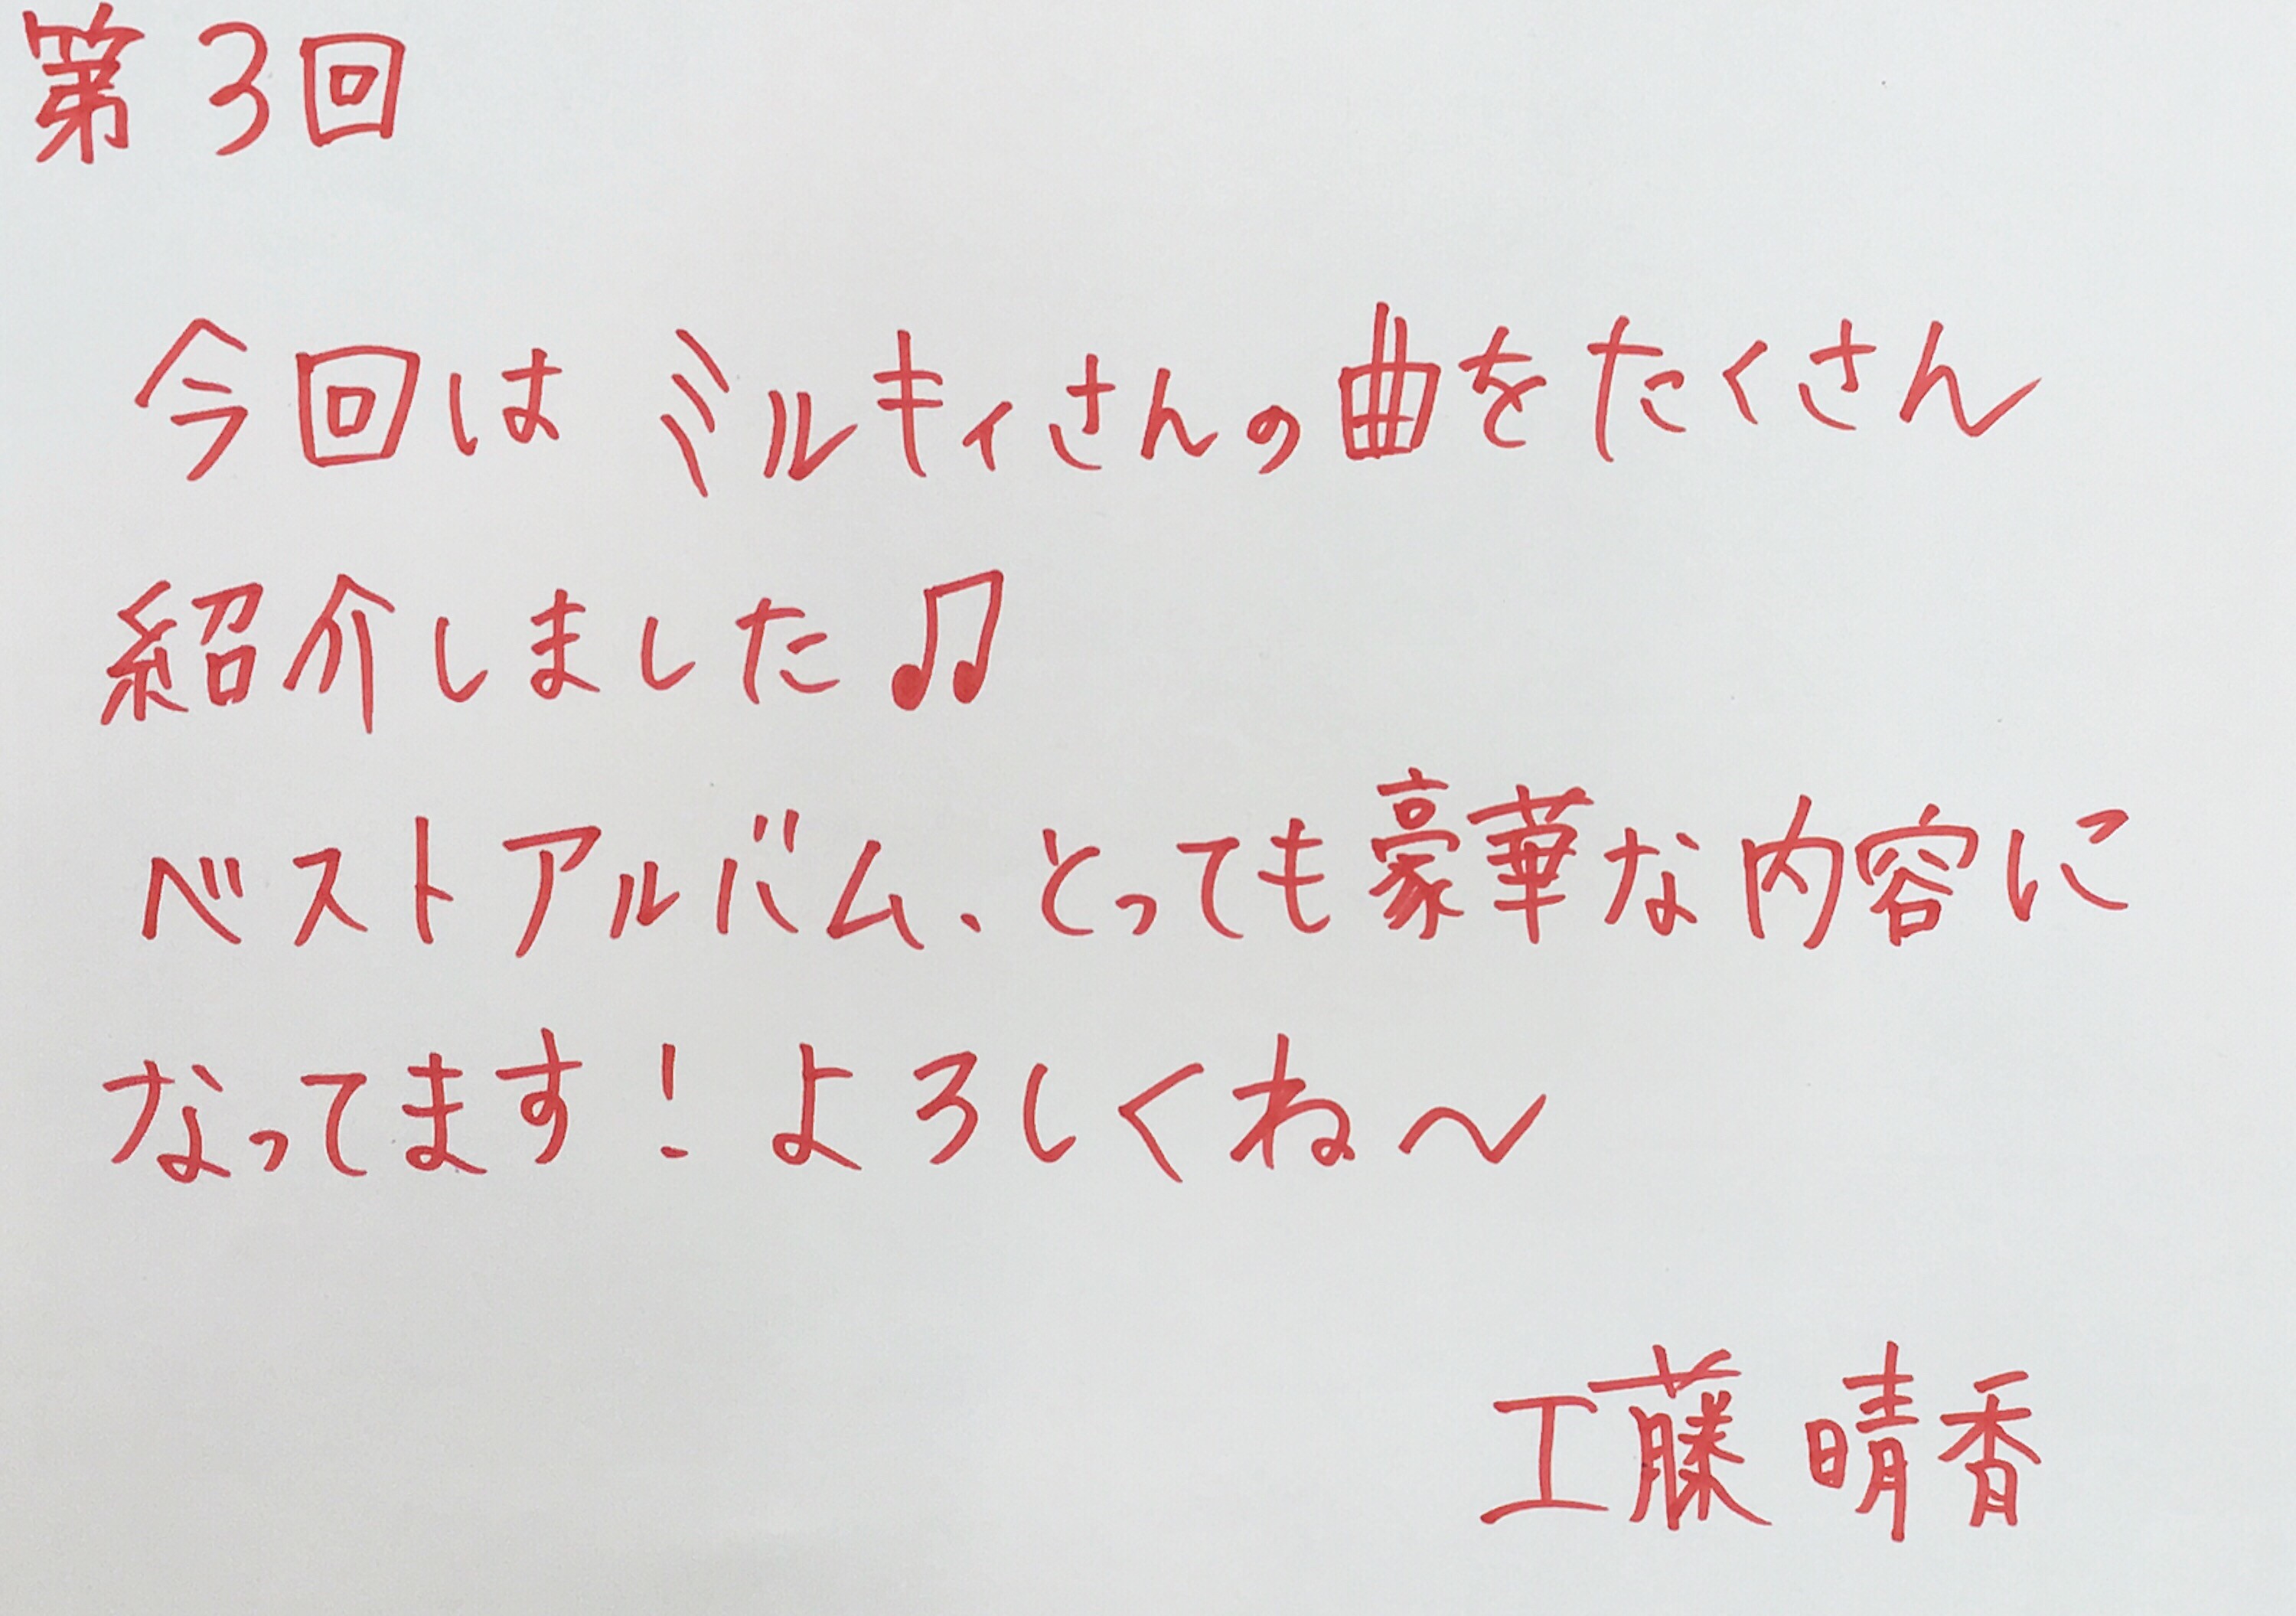 第3回
今回は ミルキィさんの曲をたくさん
紹介しました♫
ベストアルバム、とっても豪華な内容に
なってます！よろしくね〜
工藤晴香